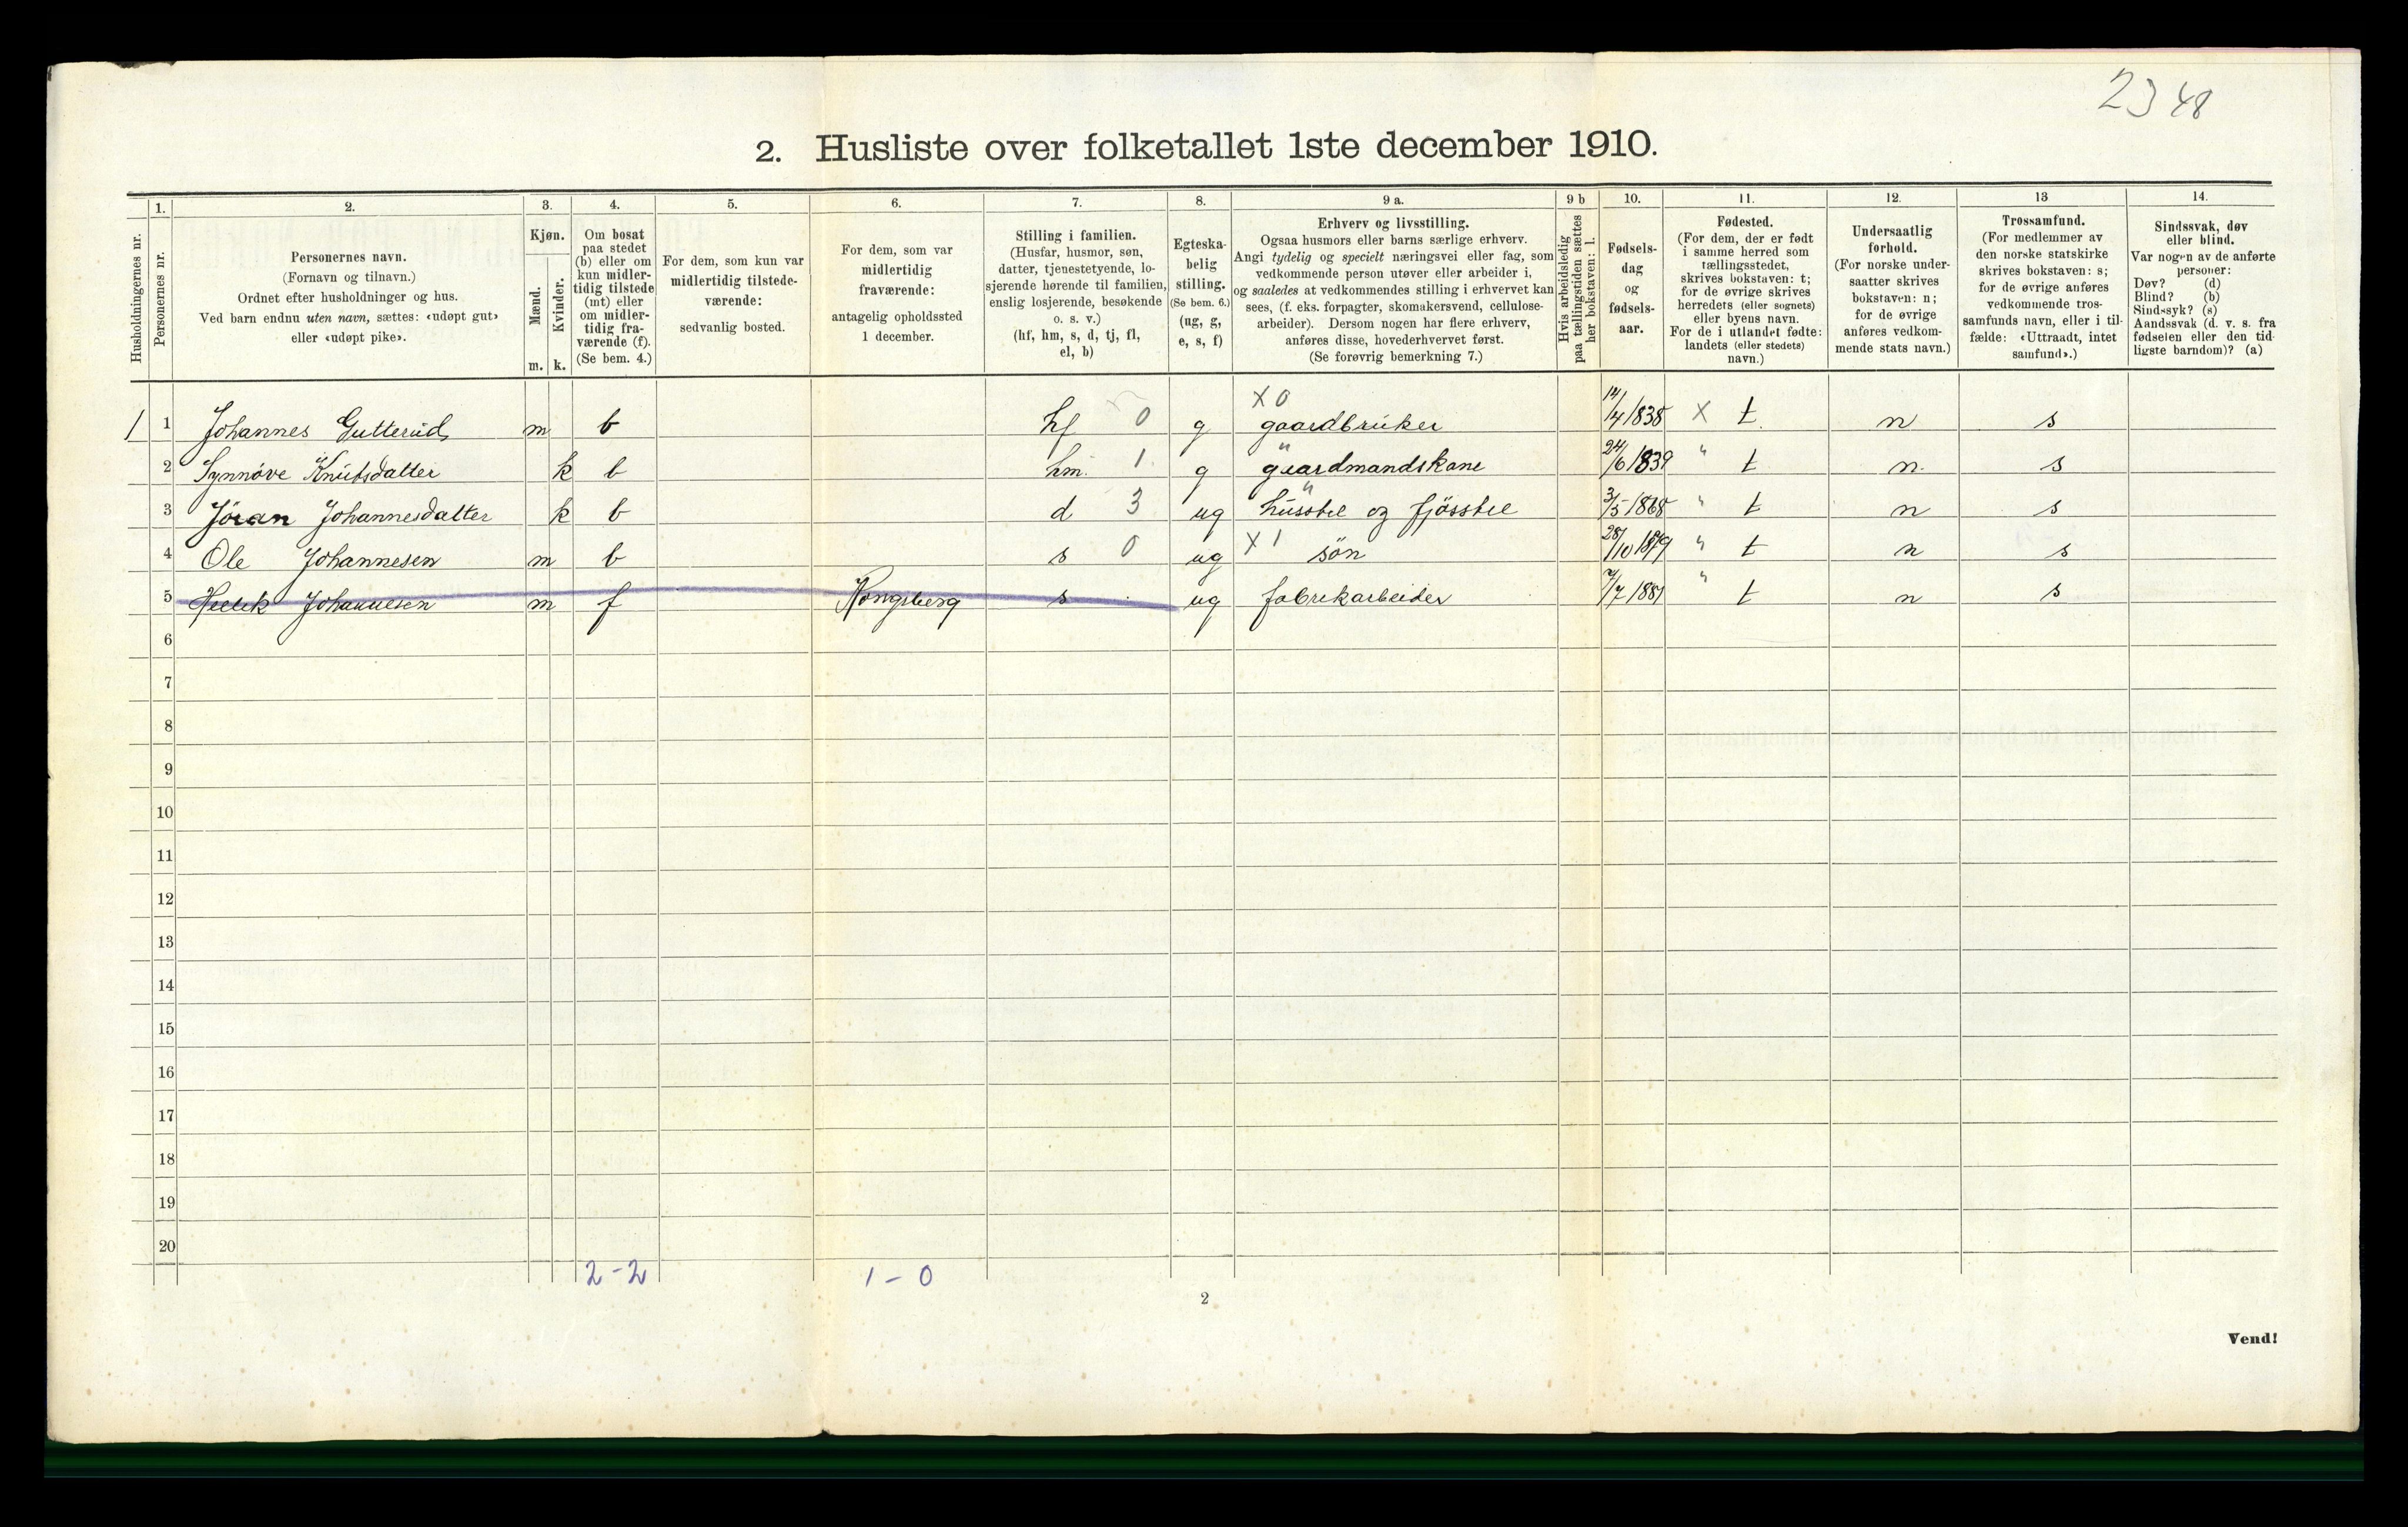 23 48
2. Husliste over folketallet 1ste december 1910.
1. 2. 3. 4. 5. 6. 7. 8. 9 a. 9 b 10. 11. 12. 13 14.
Husholdningernes nr.
Personernes nr.
Personernes navn.
(Fornavn og tilnavn.)
Ordnet efter husholdninger og hus.
Ved barn endnu uten navn, sættes: «udøpt gut»
eller «udøpt pike».
Kjøn.
Mænd.
Kvinder.
m. k.
Om bosat
paa stedet
(b) eller om
kun midler-
tidig tilstede
(mt) eller
om midler-
tidig fra-
værende (f).
(Se bem. 4.)
For dem, som kun var
midlertidig tilstede-
værende:
sedvanlig bosted.
For dem, som var
midlertidig
fraværende:
antagelig opholdssted
1 december.
Stilling i familien.
(Husfar, husmor, søn,
datter, tjenestetyende, lo-
sjerende hørende til familien,
enslig losjerende, besøkende
o. s. v.)
(hf, hm, s, d, tj, fl,
el, b)
Egteska-
belig
stilling.
(Se bem. 6.)
(ug, g,
e, s, f)
Erhverv og livsstilling.
Ogsaa husmors eller barns særlige erhverv.
Angi tydelig og specielt næringsvei eller fag, som
vedkommende person utøver eller arbeider i,
og saaledes at vedkommendes stilling i erhvervet kan
sees, (f. eks. forpagter, skomakersvend, cellulose-
arbeider). Dersom nogen har flere erhverv,
anføres disse, hovederhvervet først.
(Se forøvrig bemerkning 7.)
Hvis arbeidsledig
paa tællingstiden sættes
her bokstaven: l.
Fødsels-
dag
og
fødsels-
aar.
Fødested.
(For dem, der er født
i samme herred som
tællingsstedet,
skrives bokstaven: t;
for de øvrige skrives
herredets (eller sognets)
eller byens navn.
For de i utlandet fødte:
landets (eller stedets)
navn.)
Undersaatlig
forhold.
(For norske under-
saatter skrives
bokstaven: n;
for de øvrige
anføres vedkom-
mende stats navn.)
Trossamfund.
(For medlemmer av
den norske statskirke
skrives bokstaven: s;
for de øvrige anføres
vedkommende tros-
samfunds navn, eller i til-
fælde: «Uttraadt, intet
samfund».)
Sindssvak, døv
eller blind.
Var nogen av de anførte
personer:
Døv? (d)
Blind? (b)
Sindssyk? (s)
Aandssvak (d. v. s. fra
fødselen eller den tid-
ligste barndom)? (a)
1 1 Johannes Gutterud m b hf 0 g X 0 gaardbruker 14/4 1838 X t. n s
2 Synnöve Knutsdatter k b hm. 1 g " gaardmandskone 24/6 1839 " t n. s
3 Jöran Johannesdatter k b d 3 ug " husstel og fjösstel 3/5 1868 " t n s
4 Ole Johannesen m b s 0 ug X 1 sön 28/10 1879 " t n s
5 Johannesen m f Kongsberg s ug fabrikarbeider 7/7 1881 " t n s
6
7
8
9
10
11
12
13
14
15
16
17
18
19
20
2-2 1-0
2
Vend!